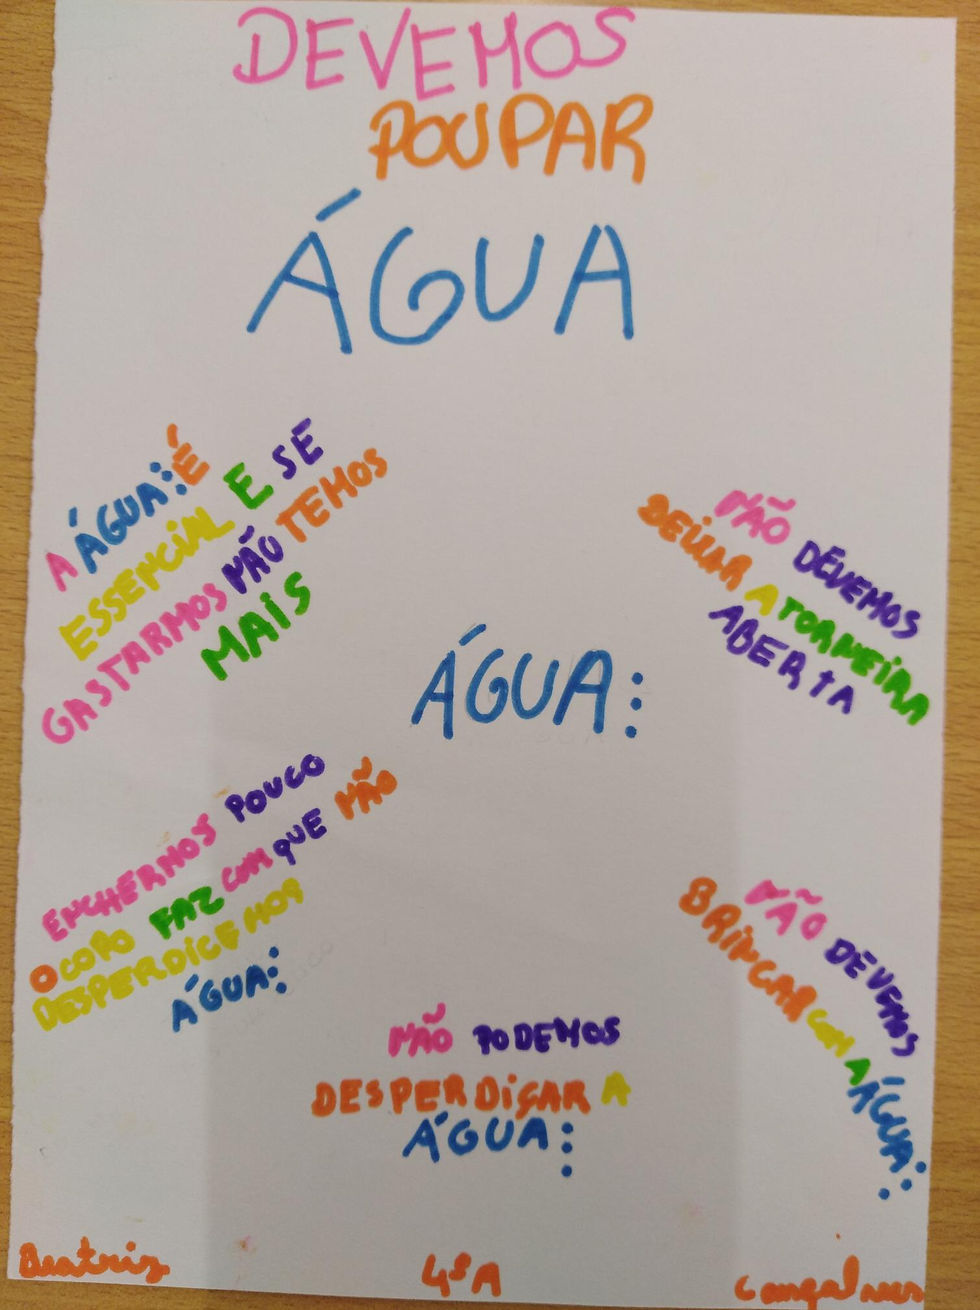 DEVEMOS
POUPAR
ÁGUA
A ÁGUA: É
ESSENCIAL E SE
GASTARMOS NÃO TEMOS
MAIS
NÃO DEVEMOS
DEIXAR A TORNEIRA
ABERTA
ÁGUA:
ENCHERMOS POUCO
O COPO FAZ COM QUE NÃO
DESPERDICEMOS
ÁGUA:
NÃO DEVEMOS
BRINCAR COM A
ÁGUA:
NÃO PODEMOS
DESPERDIÇAR A
ÁGUA:
Beatriz 4ºA Gonçalves